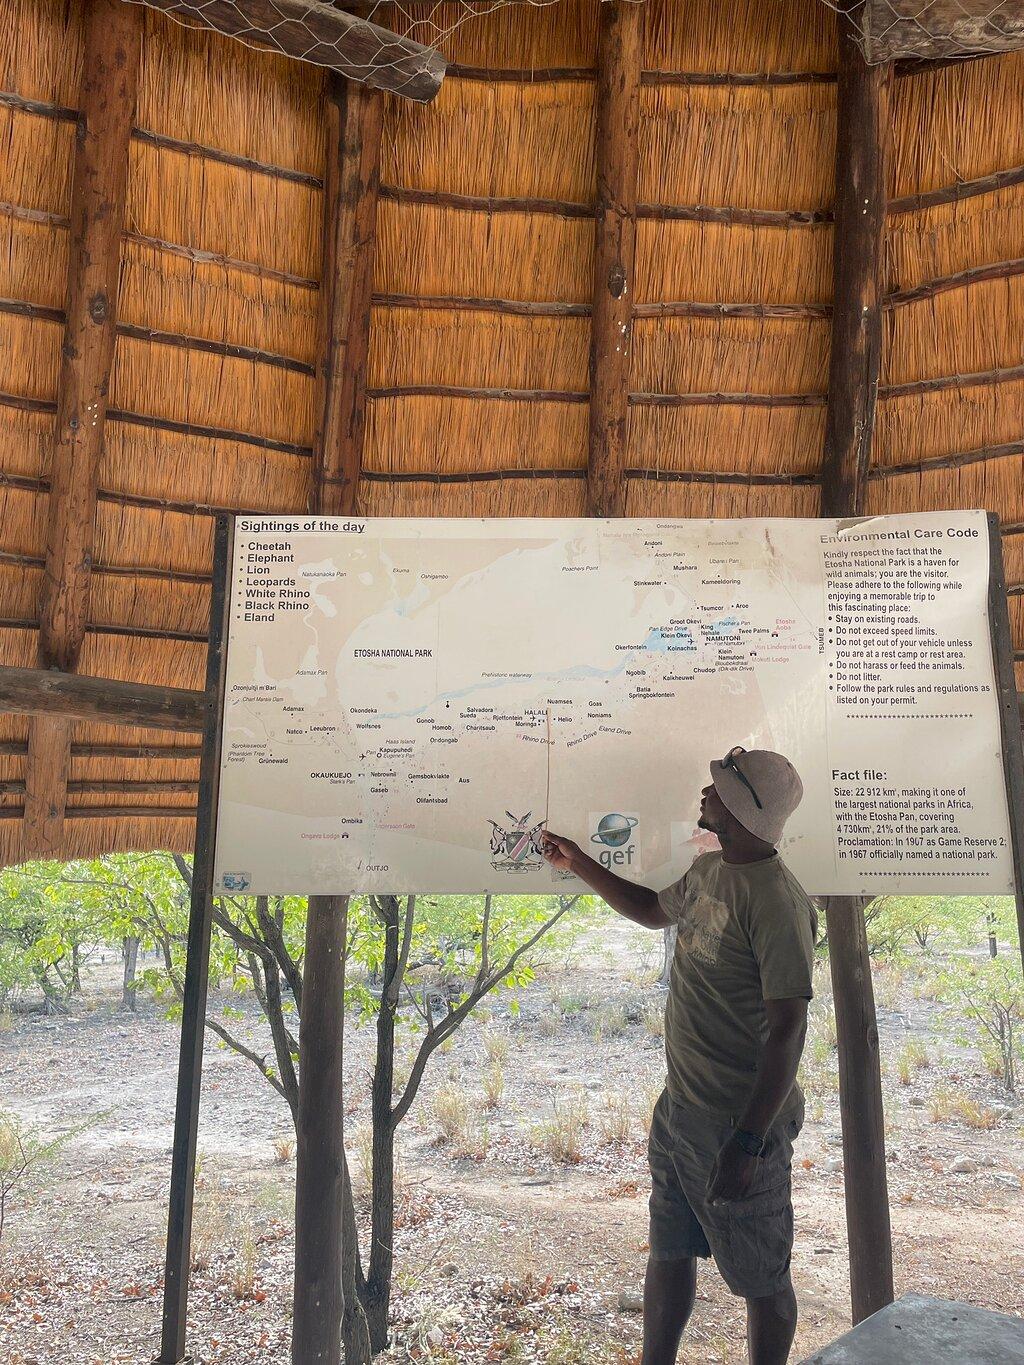 Sightings of the day
• Cheetah
• Elephant
• Lion
• Leopards
• White Rhino
• Black Rhino
• Eland
Ondangwa
Andoni
Andoni Plain
Mushara
Stinkwater
Kameeldoring
Poachers Point
Natukanaoka Pan
Ekuma
Oshigambo
Tsumcor
Aroe
Groot Okevi
Fischer's Pan
Pan Edge Drive
King Nehale
Twee Palms
Etosha Aoba
Klein Okevi
NAMUTONI
Von Lindequist Gate
Okerfontein
Koinachas
Klein Namutoni
Mokuti Lodge
Bloubokdraai
(Dik-dik Drive)
TSUMEB
ETOSHA NATIONAL PARK
Adamax Pan
Prehistoric waterway
Ngobib
Chudop
Kalkheuwel
Batia
Springbokfontein
Ozonjuitji m'Bari
Charl Marais Dam
Adamax
Natco
Leeubron
Okondeka
Wolfsnes
Gonob
Homob
Ondongab
Sueda
Salvadora
Charitsaub
Rietfontein
HALALI
Moringa
Helio
Nuamses
Goas
Noniams
Rhino Drive
Rhino Drive
Eland Drive
Sprokieswoud
(Phantom Tree Forest)
Grünewald
Haas Island
Pan
Kapupuhedi
Eugene's Pan
OKAUKUEJO
Stark's Pan
Nebrownii
Gemsbokvlakte
Aus
Gaseb
Olifantsbad
Ombika
Andersson Gate
Ongava Lodge
OUTJO
gef
Environmental Care Code
Kindly respect the fact that the
Etosha National Park is a haven for
wild animals; you are the visitor.
Please adhere to the following while
enjoying a memorable trip to
this fascinating place:
• Stay on existing roads.
• Do not exceed speed limits.
• Do not get out of your vehicle unless
you are at a rest camp or rest area.
• Do not harass or feed the animals.
• Do not litter.
• Follow the park rules and regulations as
listed on your permit.
************************
Fact file:
Size: 22 912 km², making it one of
the largest national parks in Africa,
with the Etosha Pan, covering
4 730km², 21% of the park area.
Proclamation: In 1907 as Game Reserve 2;
in 1967 officially named a national park.
************************